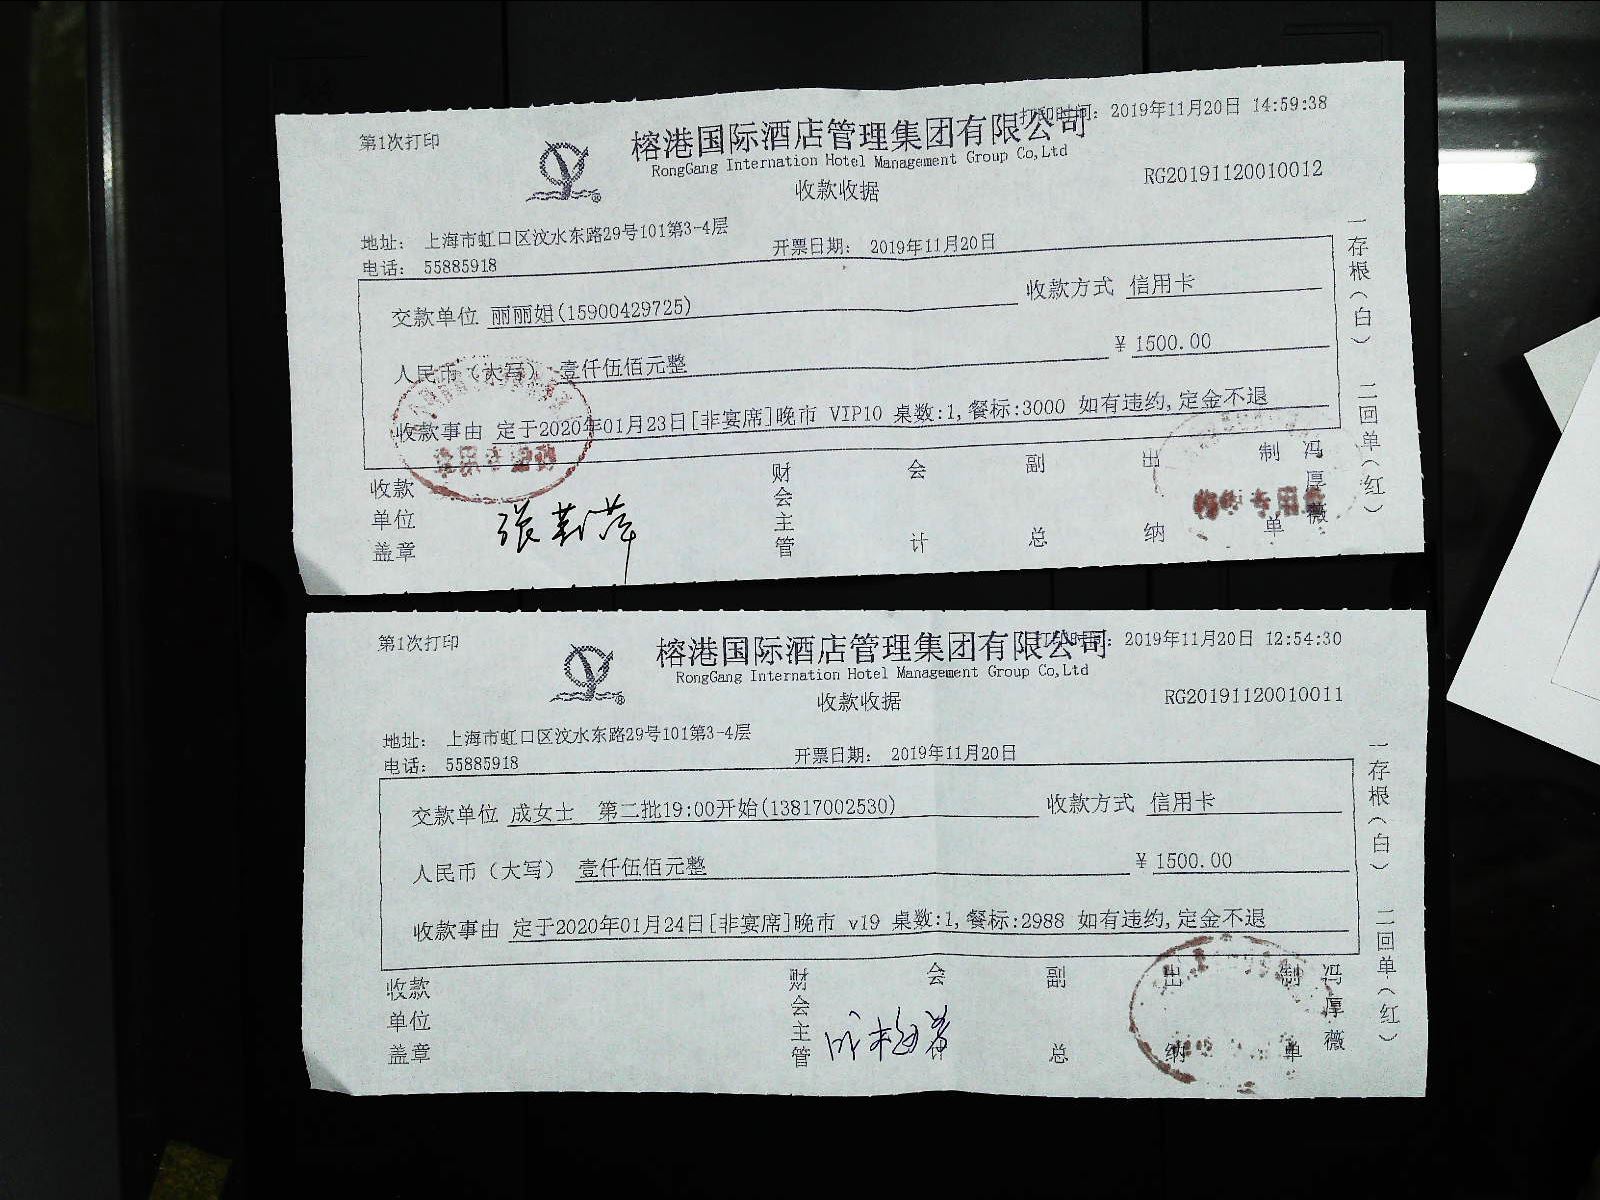 第1次打印
打印时间: 2019年11月20日 14:59:38
榕港国际酒店管理集团有限公司
RongGang Internation Hotel Management Group Co,Ltd
收款收据
RG20191120010012
地址: 上海市虹口区汶水东路29号101第3-4层
电话: 55885918
开票日期: 2019年11月20日
交款单位 丽丽姐(15900429725) 收款方式 信用卡
人民币（大写） 壹仟伍佰元整 ¥ 1500.00
收款事由 定于2020年01月23日[非宴席]晚市 VIP10 桌数:1,餐标:3000 如有违约,定金不退
收款单位盖章 财会主管 会计 副总 出纳 制单 冯厚薇
一存根（白） 二回单（红）
第1次打印
打印时间: 2019年11月20日 12:54:30
榕港国际酒店管理集团有限公司
RongGang Internation Hotel Management Group Co,Ltd
收款收据
RG20191120010011
地址: 上海市虹口区汶水东路29号101第3-4层
电话: 55885918
开票日期: 2019年11月20日
交款单位 成女士 第二批19:00开始(13817002530) 收款方式 信用卡
人民币（大写） 壹仟伍佰元整 ¥ 1500.00
收款事由 定于2020年01月24日[非宴席]晚市 v19 桌数:1,餐标:2988 如有违约,定金不退
收款单位盖章 财会主管 会计 副总 出纳 制单 冯厚薇
一存根（白） 二回单（红）